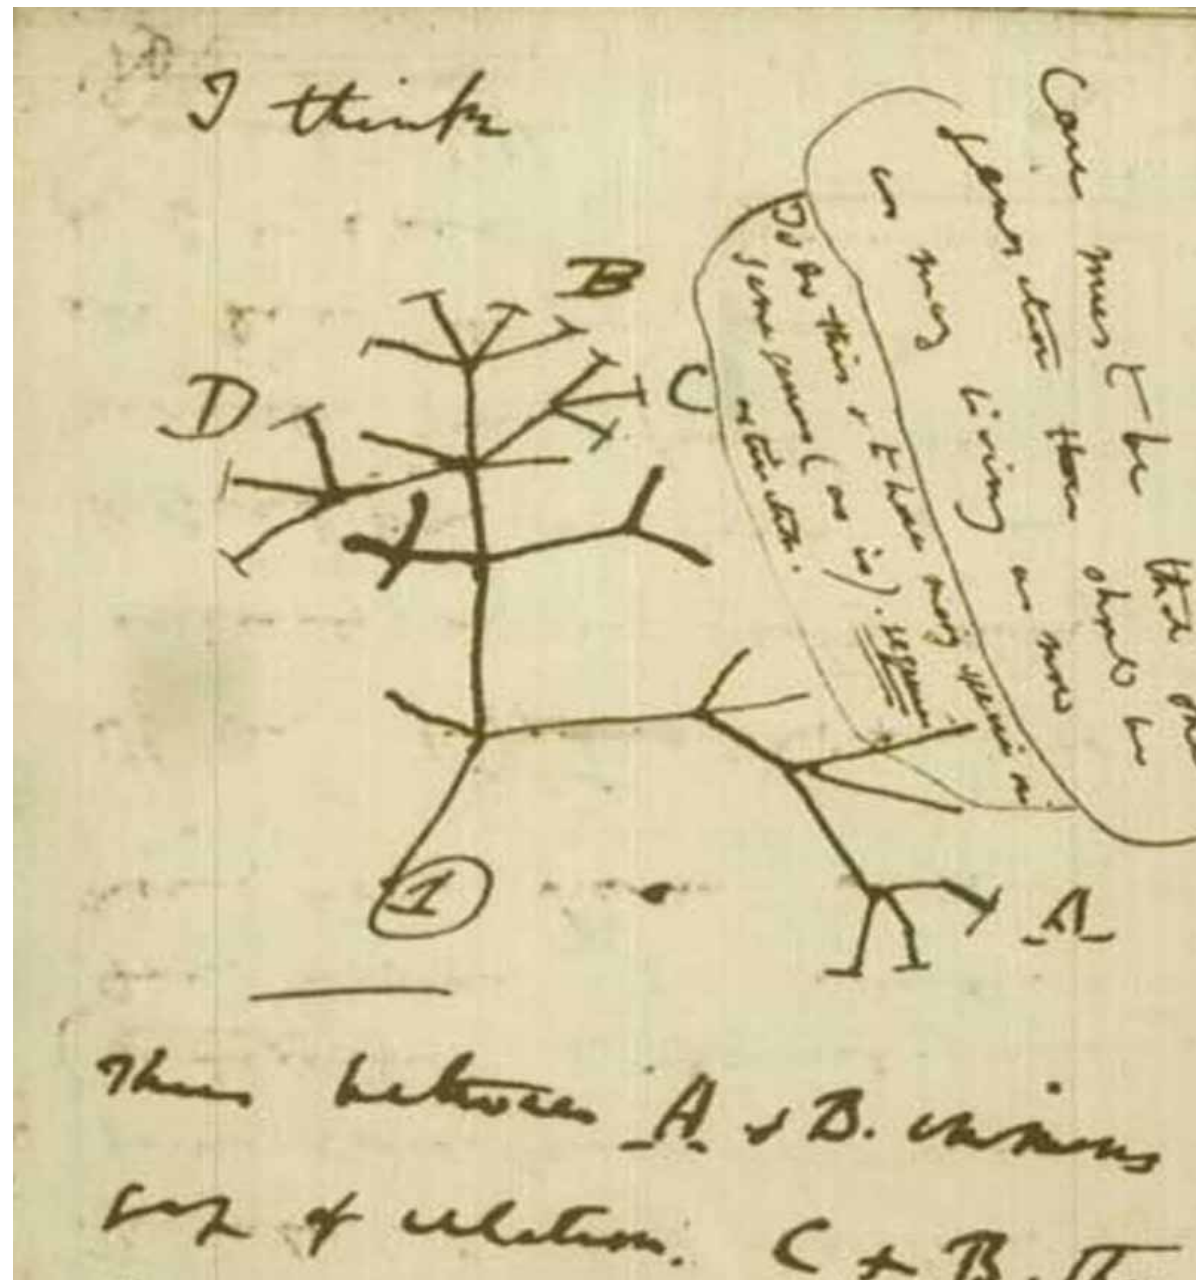 I think
Case must be that one
generation then should be
as many living as now
To do this & to have many species in
same genus (as is). requires
extinction.
B
D
C
1
A
Thus between A & B. immens
gap of relation. C & B. The